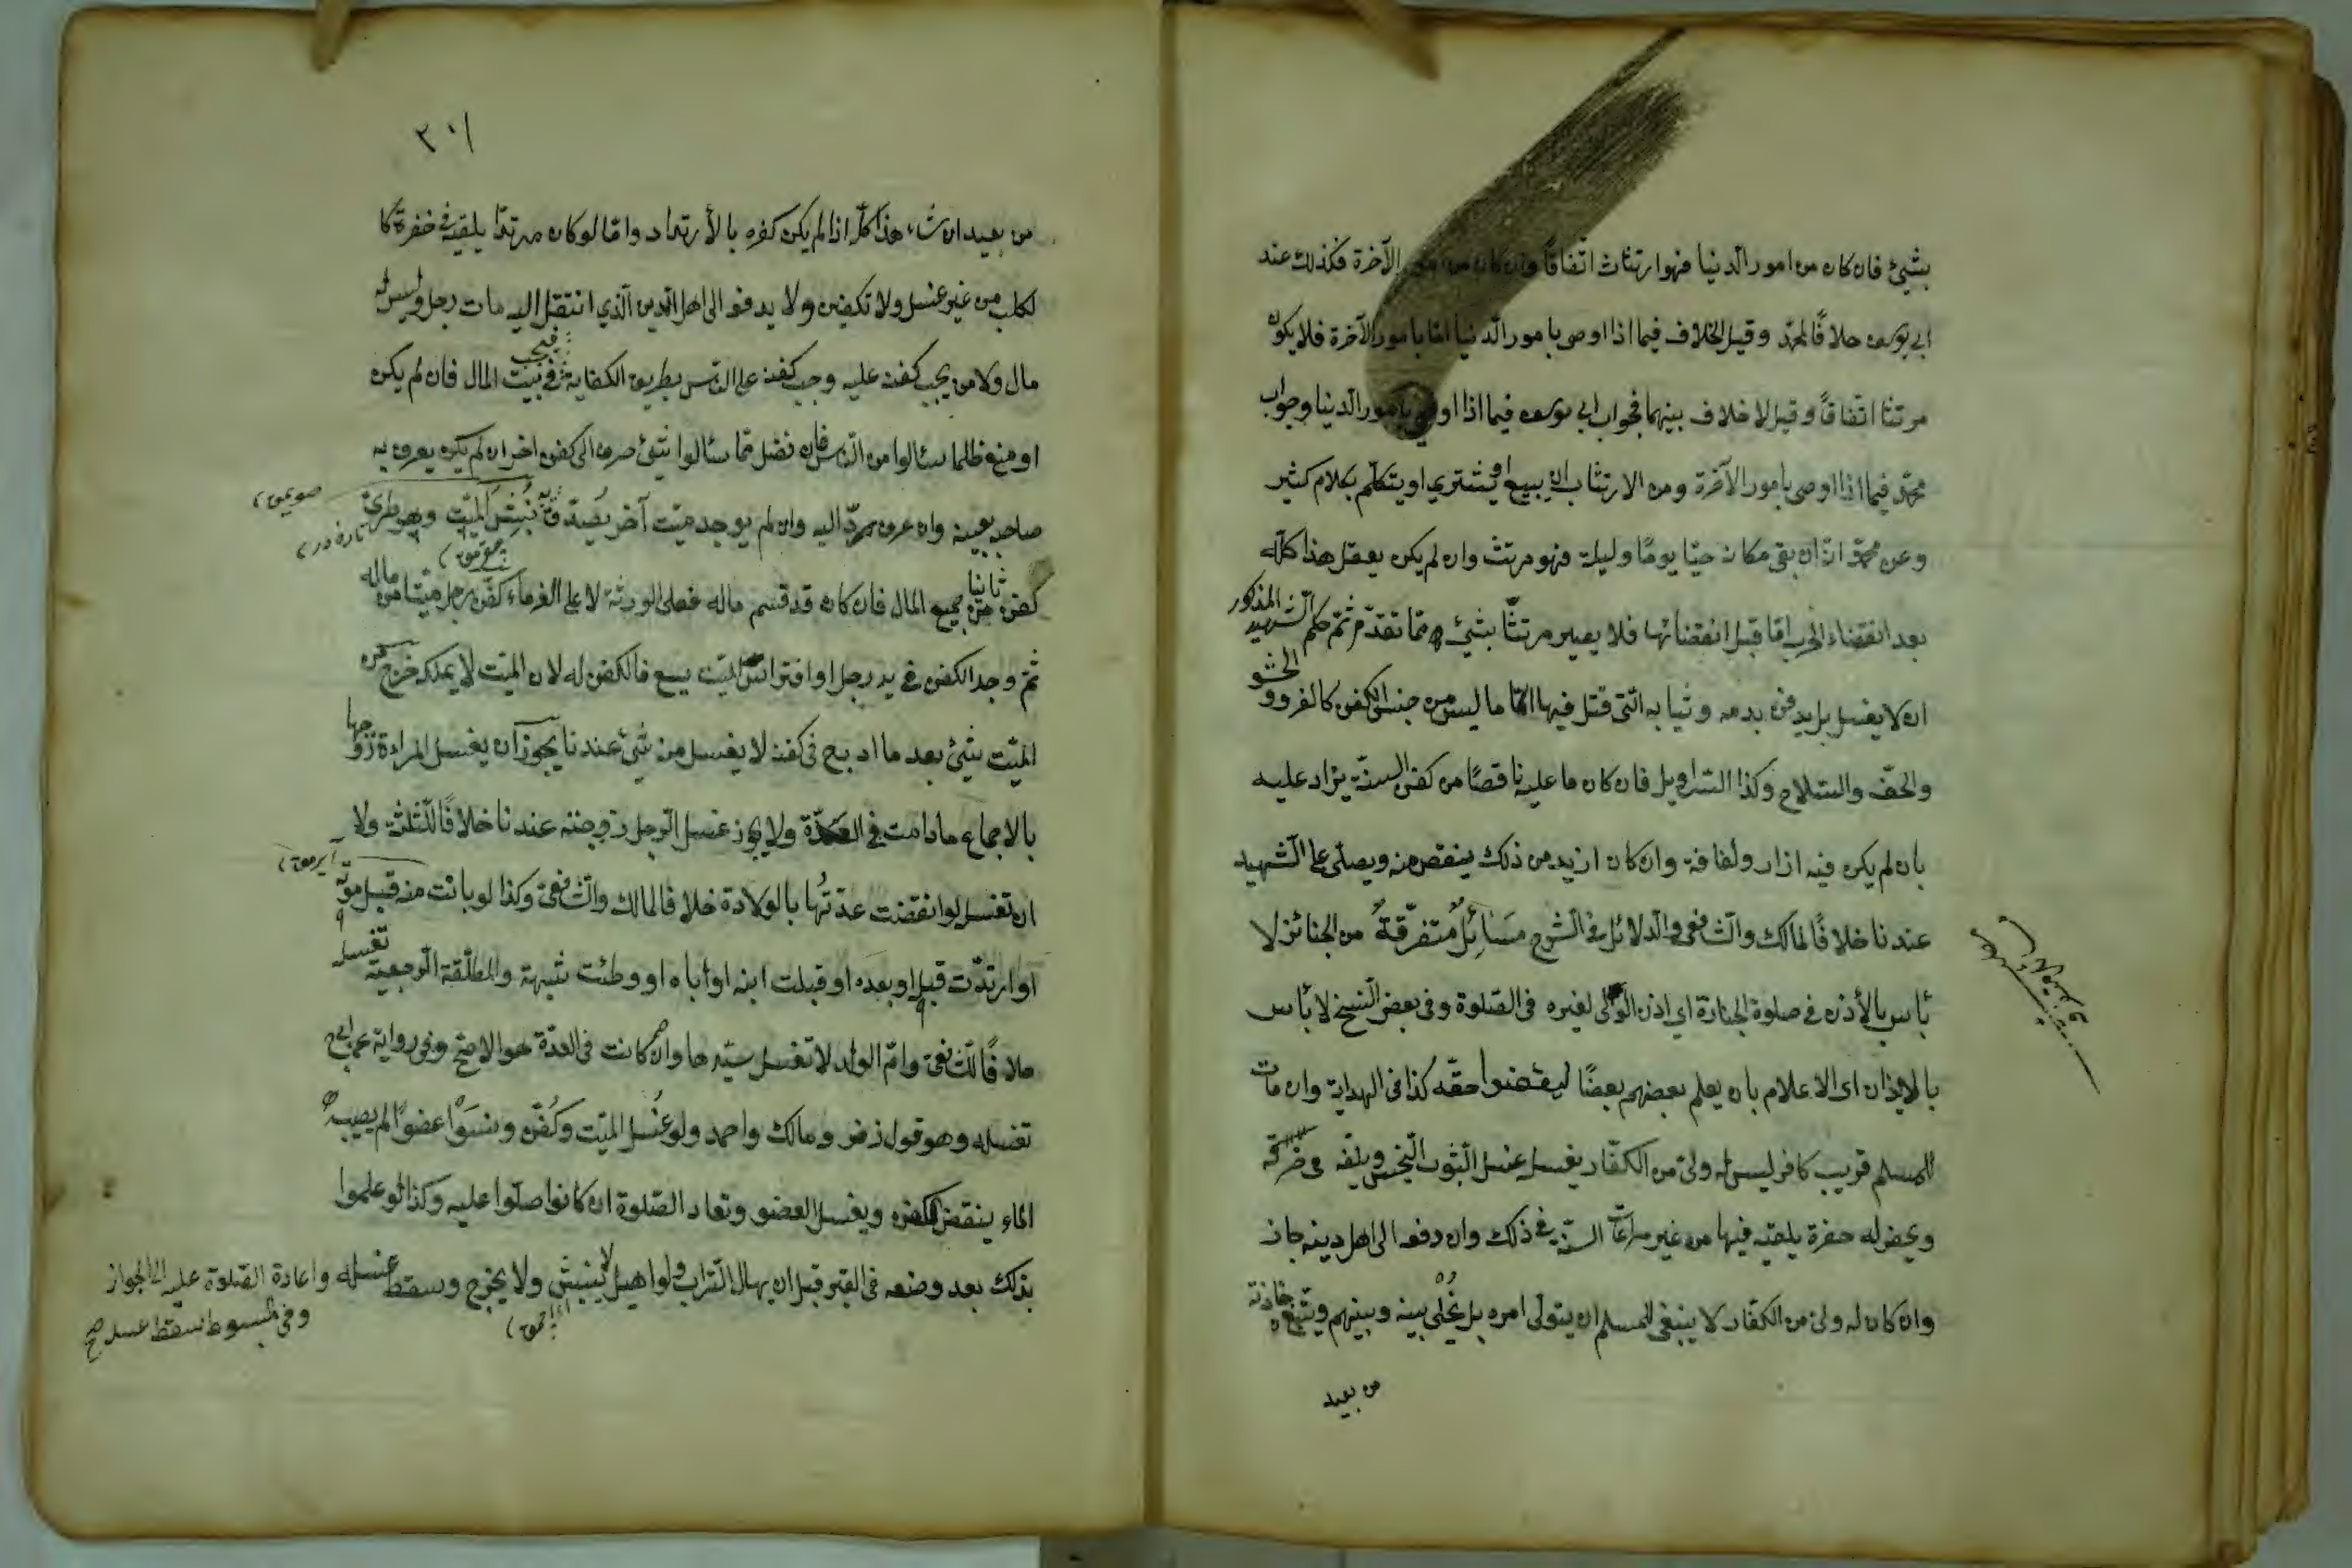 بشيئ فان كان من امور الدنيا فهو ارتثاث اتفاقًا وان كان من امور الآخرة فكذلك عند
ابي يوسف خلافًا لمحمّد وقيل الخلاف فيما اذا اوصى بامور الدنيا امّا بامور الآخرة فلا يكون
مرتثا اتفاقاً وقيل لا خلاف بينهما فجواب ابي يوسف فيما اذا اوصى بامور الدنيا وجواب
محمّد فيما اذا اوصى بامور الآخرة ومن الارتثاث ان يبيع او يشتري او يتكلّم بكلام كثير
وعن محمّد انّه ان بقي مكانه حيًا يومًا وليلة فهو مرتث وان لم يكن يعقل هذا كلّه
بعد انقضاء الحرب امّا قبل انقضائها فلا يصير مرتثًّا بشيئ ممّا تقدّم ثمّ حكم الشّهيد المذكور
ان لا يغسل بل يدفن بدمه وثيابه التّى قتل فيها الّا ما ليس من جنس الكفن كالفرو و الحشو
والخفّ والسّلاح وكذا السّراويل فان كان ما عليه ناقصًا من كفن السنّة يزاد عليه
بان لم يكن فيه ازار ولفافة وان كان ازيد من ذلك ينقص منه ويصلّى على الشّهيد
عندنا خلافًا لمالك والشّافعى والدلائل فى الشّرح مَسَائِلُ مُتفرّقةٌ من الجنائز لا
بأس بالأذن فى صلوة الجنازة اى اذن الولى لغيره فى الصّلوة وفى بعض النّسخ لا بأس
بالايذان اى الاعلام بان يعلم بعضهم بعضًا ليقضوا حقّه كذا فى الهداية وان مات
للمسلم قريب كافر ليس له ولىّ من الكفّار يغسل غسل الثّوب النّجس ويلفّه فى خرقة
ويحفر له حفرة يلقيه فيها من غير مراعات السنّة فى ذلك وان دفعه الى اهل دينه جاز
وان كان له ولىّ من الكفّار لا ينبغى للمسلم ان يتولّى امره بل يُخْلى بينه وبينهم ويتّبع جنازته
من بعيد
٣٠١
من بعيد ان شاء هذا كلّه اذا لم يكن كفره بالأرتداد وامّا لو كان مرتدًا يلقيه فى حفرة كا
لكلب من غير غسل ولا تكفين ولا يدفعه الى اهل الدّين الّذي انتقل اليه مات رجل وليس له
مال ولا من يجب كفنه عليه وجب كفنه على النّاس بطريق الكفاية فيجب فى بيت المال فان لم يكن
او منع ظلما سئالوا من النّاس فان فضل ممّا سئالوا شئ صرف الى كفن اخر ان لم يكن يعرف به
صاحبه بعينه وان عرف يردّ اليه وان لم يوجد ميّت آخر يصدّق به نُبِشَ الميّت وهو طرىّ
كفن ثانيا من جميع المال فان كان قد قسم ماله فعلى الورثة لا على الغرماء كفّن رجل ميّتا من ماله
ثمّ وجد الكفن فى يد رجل او افترس الميّت سبع فالكفن له لان الميّت لا يملكه خرج من
الميّت شئ بعد ما ادرج فى كفنه لا يغسل منه شئ عندنا يجوز ان يغسل المراءة زوجها
بالاجماع ما دامت فى العدّة ولا يجوز غسل الرّجل زوجته عندنا خلافًا للثّلثة ولا
ان تغسل لو انقضت عدّتُها بالولادة خلافا لمالك والشّافعى وكذا لو بانت منه قبل موته
او ارتدّت قبله او بعده او قبلت ابنه او اباه او وطئت شبهة والمطلّقة الرّجعيّة تغسله
خلافًا للشّافعى وامّ الولد لا تغسل سيّدها وان كانت فى العدّة هو الاصحّ وفى رواية عن ابى ح
تغسله وهو قول زفر ومالك واحمد ولو غُسل الميّت وكُفّن ونَسَوْا عضوًا لم يصبه
الماء ينقض الكفن ويغسل العضو وتعاد الصّلوة ان كانوا صلّوا عليه وكذا لو علموا
بذلك بعد وضعه فى القبر قبل ان يهال التّراب ولو اهيل لا يُنبش ولا يخرج وسقط غسله واعادة الصّلوة عليه الى الجواز
وفى المبسوط سقط غسله صح